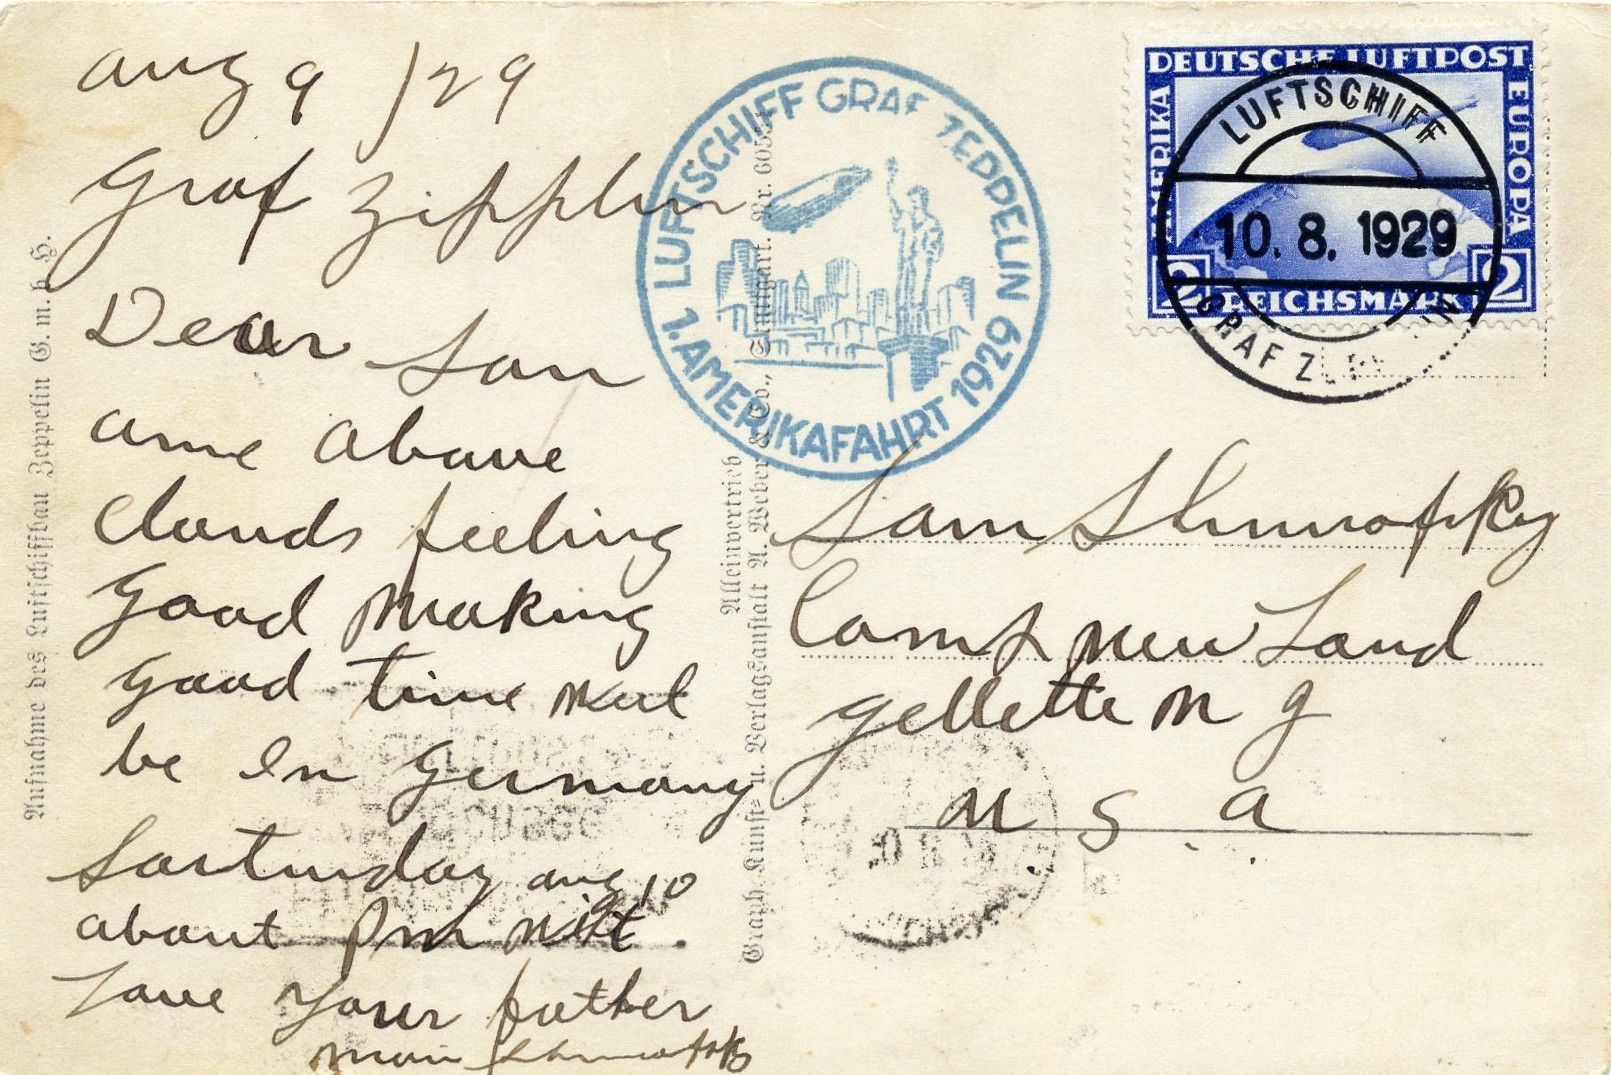 aug 9 / 29
Graf Zipplin
Dear Son
ame abave
clauds feeling
good making
good time
be In Germany
Sarturday aug 10
abaut Pm
Lave your father
LUFTSCHIFF GRAF ZEPPELIN
1. AMERIKAFAHRT 1929
DEUTSCHE LUFTPOST
AMERIKA
EUROPA
2 REICHSMARK 2
LUFTSCHIFF
10. 8. 1929
GRAF ZEPPELIN
Sam
Camp New Land
gellette N J
U S A
Aufnahme des Luftschiffbau Zeppelin G. m. b. H.
Alleinvertrieb
Graph. Kunst- u. Verlagsanstalt A. Weber & Co., Stuttgart.